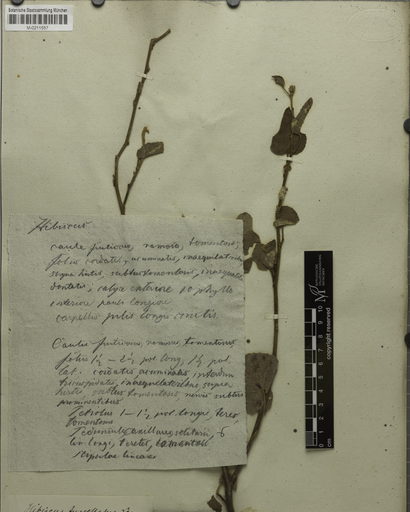 Botanische Staatssammlung München
M-0211557
Hibiscus
caule fruticoso, ramoso, tomentoso,
foliis cordatis, acuminatis, inaequilateris
supra hirtis, subtus tomentosis, inaequale
dentatis; calyce exteriore 10 phyllo
interiore paulo longiore
capsulis pilis longis
Caulis fruticosus, ramosus, tomentosus
folia 1½ - 2½ pol. long, 1½ pol
lat. cordatis acuminatis, interdum
tricuspidatis, inaequilateribus, supra
hirtis, subtus tomentosis, nervis subtus
prominentibus
Petiolus 1 - 1½ pol. longis, teres,
tomentosus
Pedunculus axillares, solitarii, 6
lin. longi, teretes, tomentosi
Stipulae lineares
Hibiscus